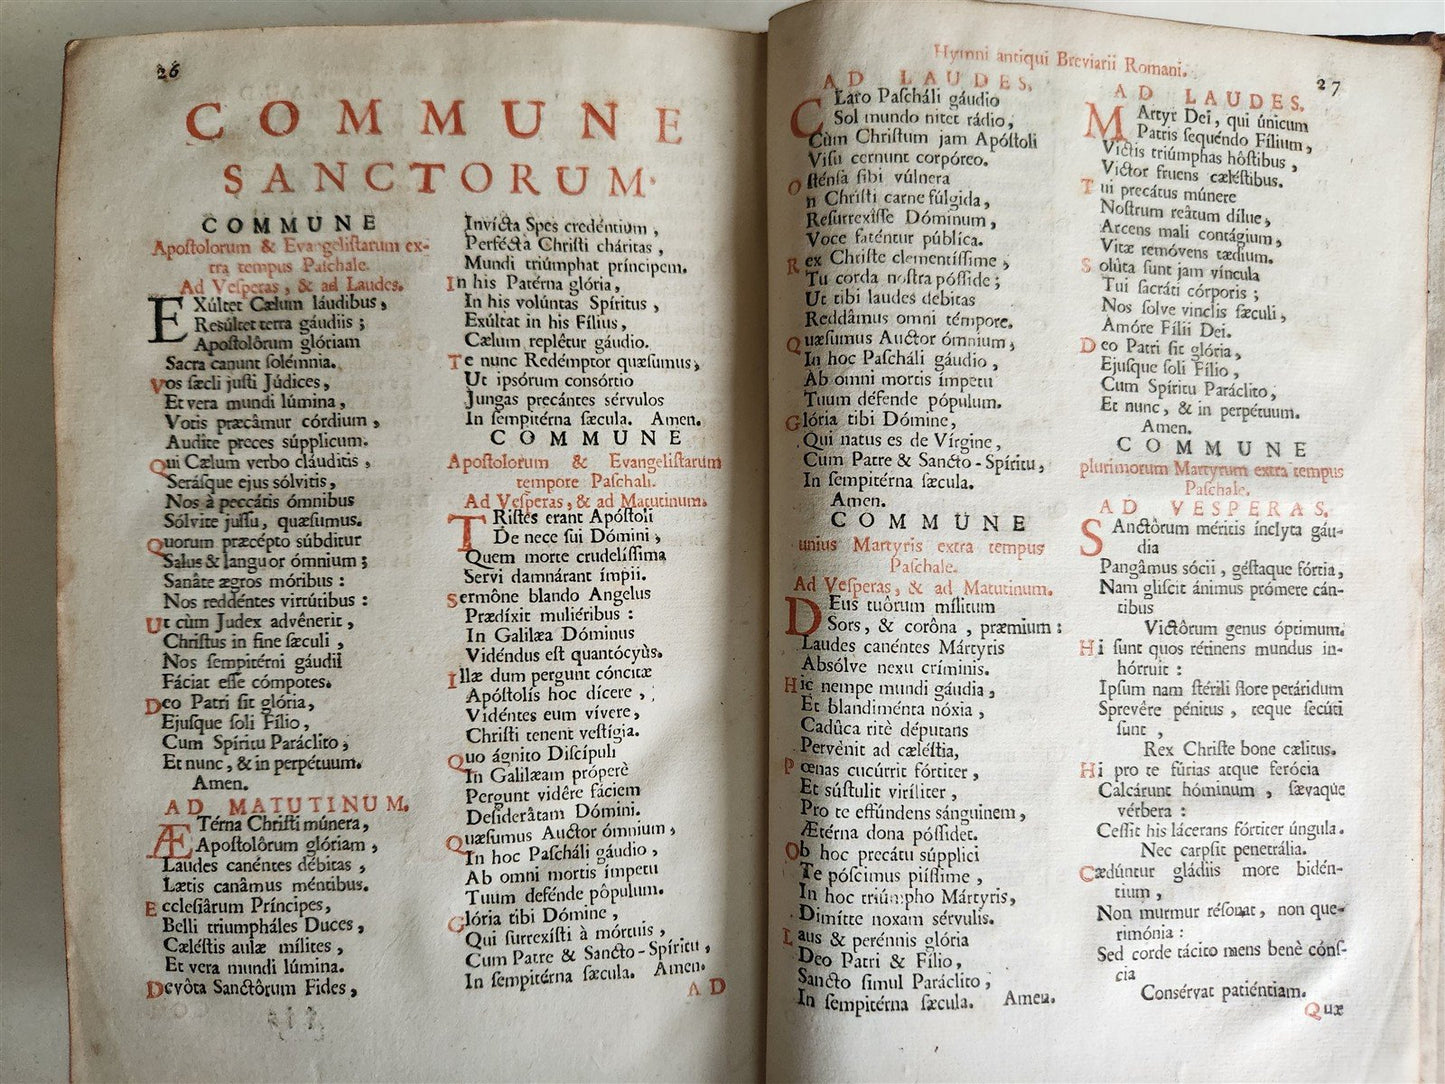 26
COMMUNE
SANCTORUM.
COMMUNE
Apoſtolorum & Evangeliſtarum ex-
tra tempus Paſchale.
Ad Veſperas, & ad Laudes.
EXúltet Cælum láudibus,
Reſúltet terra gáudiis;
Apoſtolôrum glóriam
Sacra canunt ſolémnia.
Vos ſæcli juſti Júdices,
Et vera mundi lúmina,
Votis præcâmur córdium,
Audite preces súpplicum.
Qui Cælum verbo cláuditis,
Serásque ejus sólvitis,
Nos à peccátis ómnibus
Sólvite juſſu, quæſumus.
Quorum præcépto súbditur
Salus & languor ómnium;
Sanâte ægros móribus:
Nos reddéntes virtútibus:
Ut cùm Judex advênerit,
Chriſtus in fine ſæculi,
Nos ſempitérni gáudii
Fáciat eſſe cómpotes.
Deo Patri ſit glória,
Ejuſque ſoli Fílio,
Cum Spíritu Paráclito,
Et nunc, & in perpétuum.
Amen.
AD MATUTINUM.
ÆTérna Chriſti múnera,
Apoſtolôrum glóriam,
Laudes canéntes débitas,
Lætis canâmus méntibus.
Eccleſiârum Príncipes,
Belli triumpháles Duces,
Cæléſtis aulæ mílites,
Et vera mundi lúmina.
Devôta Sanctôrum Fides,
Invícta Spes credéntium,
Perfécta Chriſti cháritas,
Mundi triúmphat príncipem.
In his Patérna glória,
In his volúntas Spíritus,
Exúltat in his Fílius,
Cælum replêtur gáudio.
Te nunc Redémptor quæſumus,
Ut ipsórum consórtio
Jungas precántes sérvulos
In ſempitérna ſæcula. Amen.
COMMUNE
Apoſtolorum & Evangeliſtarum
tempore Paſchali.
Ad Veſperas, & ad Matutinum.
TRiſtes erant Apóſtoli
De nece ſui Dómini,
Quem morte crudelíſſima
Servi damnárant ímpii.
Sermône blando Angelus
Prædíxit muliéribus:
In Galilæa Dóminus
Vidéndus eſt quantócyùs.
Illæ dum pergunt cóncitæ
Apóſtolis hoc dícere,
Vidéntes eum vívere,
Chriſti tenent veſtígia.
Quo ágnito Diſcípuli
In Galilæam próperè
Pergunt vidêre fáciem
Deſiderâtam Dómini.
Quæſumus Auctor ómnium,
In hoc Paſcháli gáudio,
Ab omni mortis ímpetu
Tuum defénde pôpulum.
Glória tibi Dómine,
Qui ſurrexíſti à mórtuis,
Cum Patre & Sancto-Spíritu,
In ſempitérna ſæcula. Amen.
AD
Hymni antiqui Breviarii Romani.
27
AD LAUDES.
CLaro Paſcháli gáudio
Sol mundo nitet rádio,
Cùm Chriſtum jam Apóſtoli
Viſu cernunt corpóreo.
Oſténſa ſibi vúlnera
In Chriſti carne fúlgida,
Reſurrexíſſe Dóminum,
Voce faténtur pública.
Rex Chriſte clementíſſime,
Tu corda noſtra póſſide;
Ut tibi laudes debitas
Reddâmus omni témpore.
Quæſumus Auctor ómnium,
In hoc Paſcháli gáudio,
Ab omni mortis ímpetu
Tuum défende pópulum.
Glória tibi Dómine,
Qui natus es de Vírgine,
Cum Patre & Sancto-Spíritu,
In ſempitérna ſæcula.
Amen.
COMMUNE
unius Martyris extra tempus
Paſchale.
Ad Veſperas, & ad Matutinum.
DEus tuôrum mílitum
Sors, & corôna, præmium:
Laudes canéntes Mártyris
Absólve nexu críminis.
Hic nempe mundi gáudia,
Et blandiménta nóxia,
Cadûca ritè députans
Pervènit ad cæléſtia,
Pœnas cucúrrit fórtiter,
Et súſtulit viríliter,
Pro te effúndens sánguinem,
Ætérna dona póſſidet.
Ob hoc precátu súpplici
Te póſcimus piíſſime,
In hoc triúmpho Mártyris,
Dimítte noxam sérvulis.
Laus & perénnis glória
Deo Patri & Fílio,
Sancto ſimul Paráclito,
In ſempitérna ſæcula. Amen.
AD LAUDES.
MArtyr Dei, qui únicum
Patris ſequéndo Fílium,
Victis triúmphas hôſtibus,
Victor fruens cæléſtibus.
Tui precátus múnere
Noſtrum reâtum dílue,
Arcens mali contágium,
Vitæ remóvens tædium.
Solûta ſunt jam víncula
Tui ſacráti córporis;
Nos ſolve vinclis ſæculi,
Amóre Fílii Dei.
Deo Patri ſit glória,
Ejuſque ſoli Fílio,
Cum Spíritu Paráclito,
Et nunc, & in perpétuum.
Amen.
COMMUNE
plurimorum Martyrum extra tempus
Paſchale.
AD VESPERAS.
SAnctòrum méritis ínclyta gáu-
dia
Pangâmus sócii, géſtaque fórtia,
Nam gliſcit ánimus prómere cán-
tibus
Victôrum genus óptimum.
Hi ſunt quos rétinens mundus in-
hórruit:
Ipſum nam ſtérili flore peráridum
Sprevêre pénitus, teque ſecúti
ſunt,
Rex Chriſte bone cælitus.
Hi pro te fúrias atque ferócia
Calcárunt hóminum, ſævaque
vérbera:
Ceſſit his lácerans fórtiter úngula.
Nec carpſit penetrália.
Cædúntur gládiis more bidén-
tium,
Non murmur réſonat, non que-
rimónia:
Sed corde tácito mens benè cónſ-
cia
Consérvat patiéntiam.
Quæ